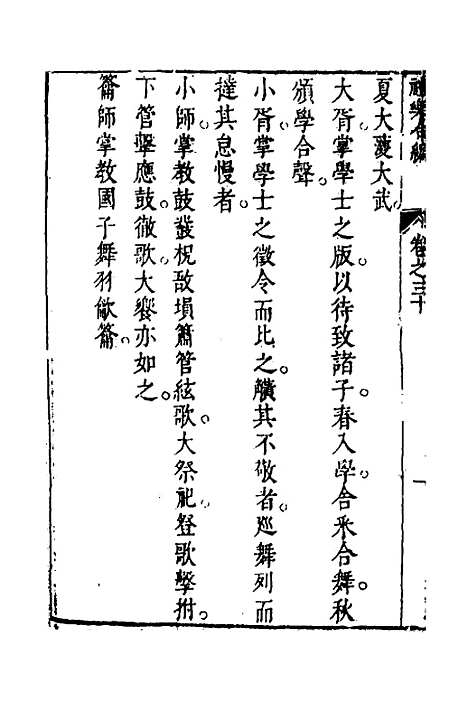 禮樂合編 卷之三十
夏大濩大武
大胥掌學士之版以待致諸子春入學舍采合舞秋
頒學合聲
小胥掌學士之徵令而比之觵其不敬者巡舞列而
撻其怠慢者
小師掌教鼓鼗柷敔塤簫管絃歌大祭祀登歌擊拊
下管擊應鼓徹歌大饗亦如之
籥師掌教國子舞羽龡籥